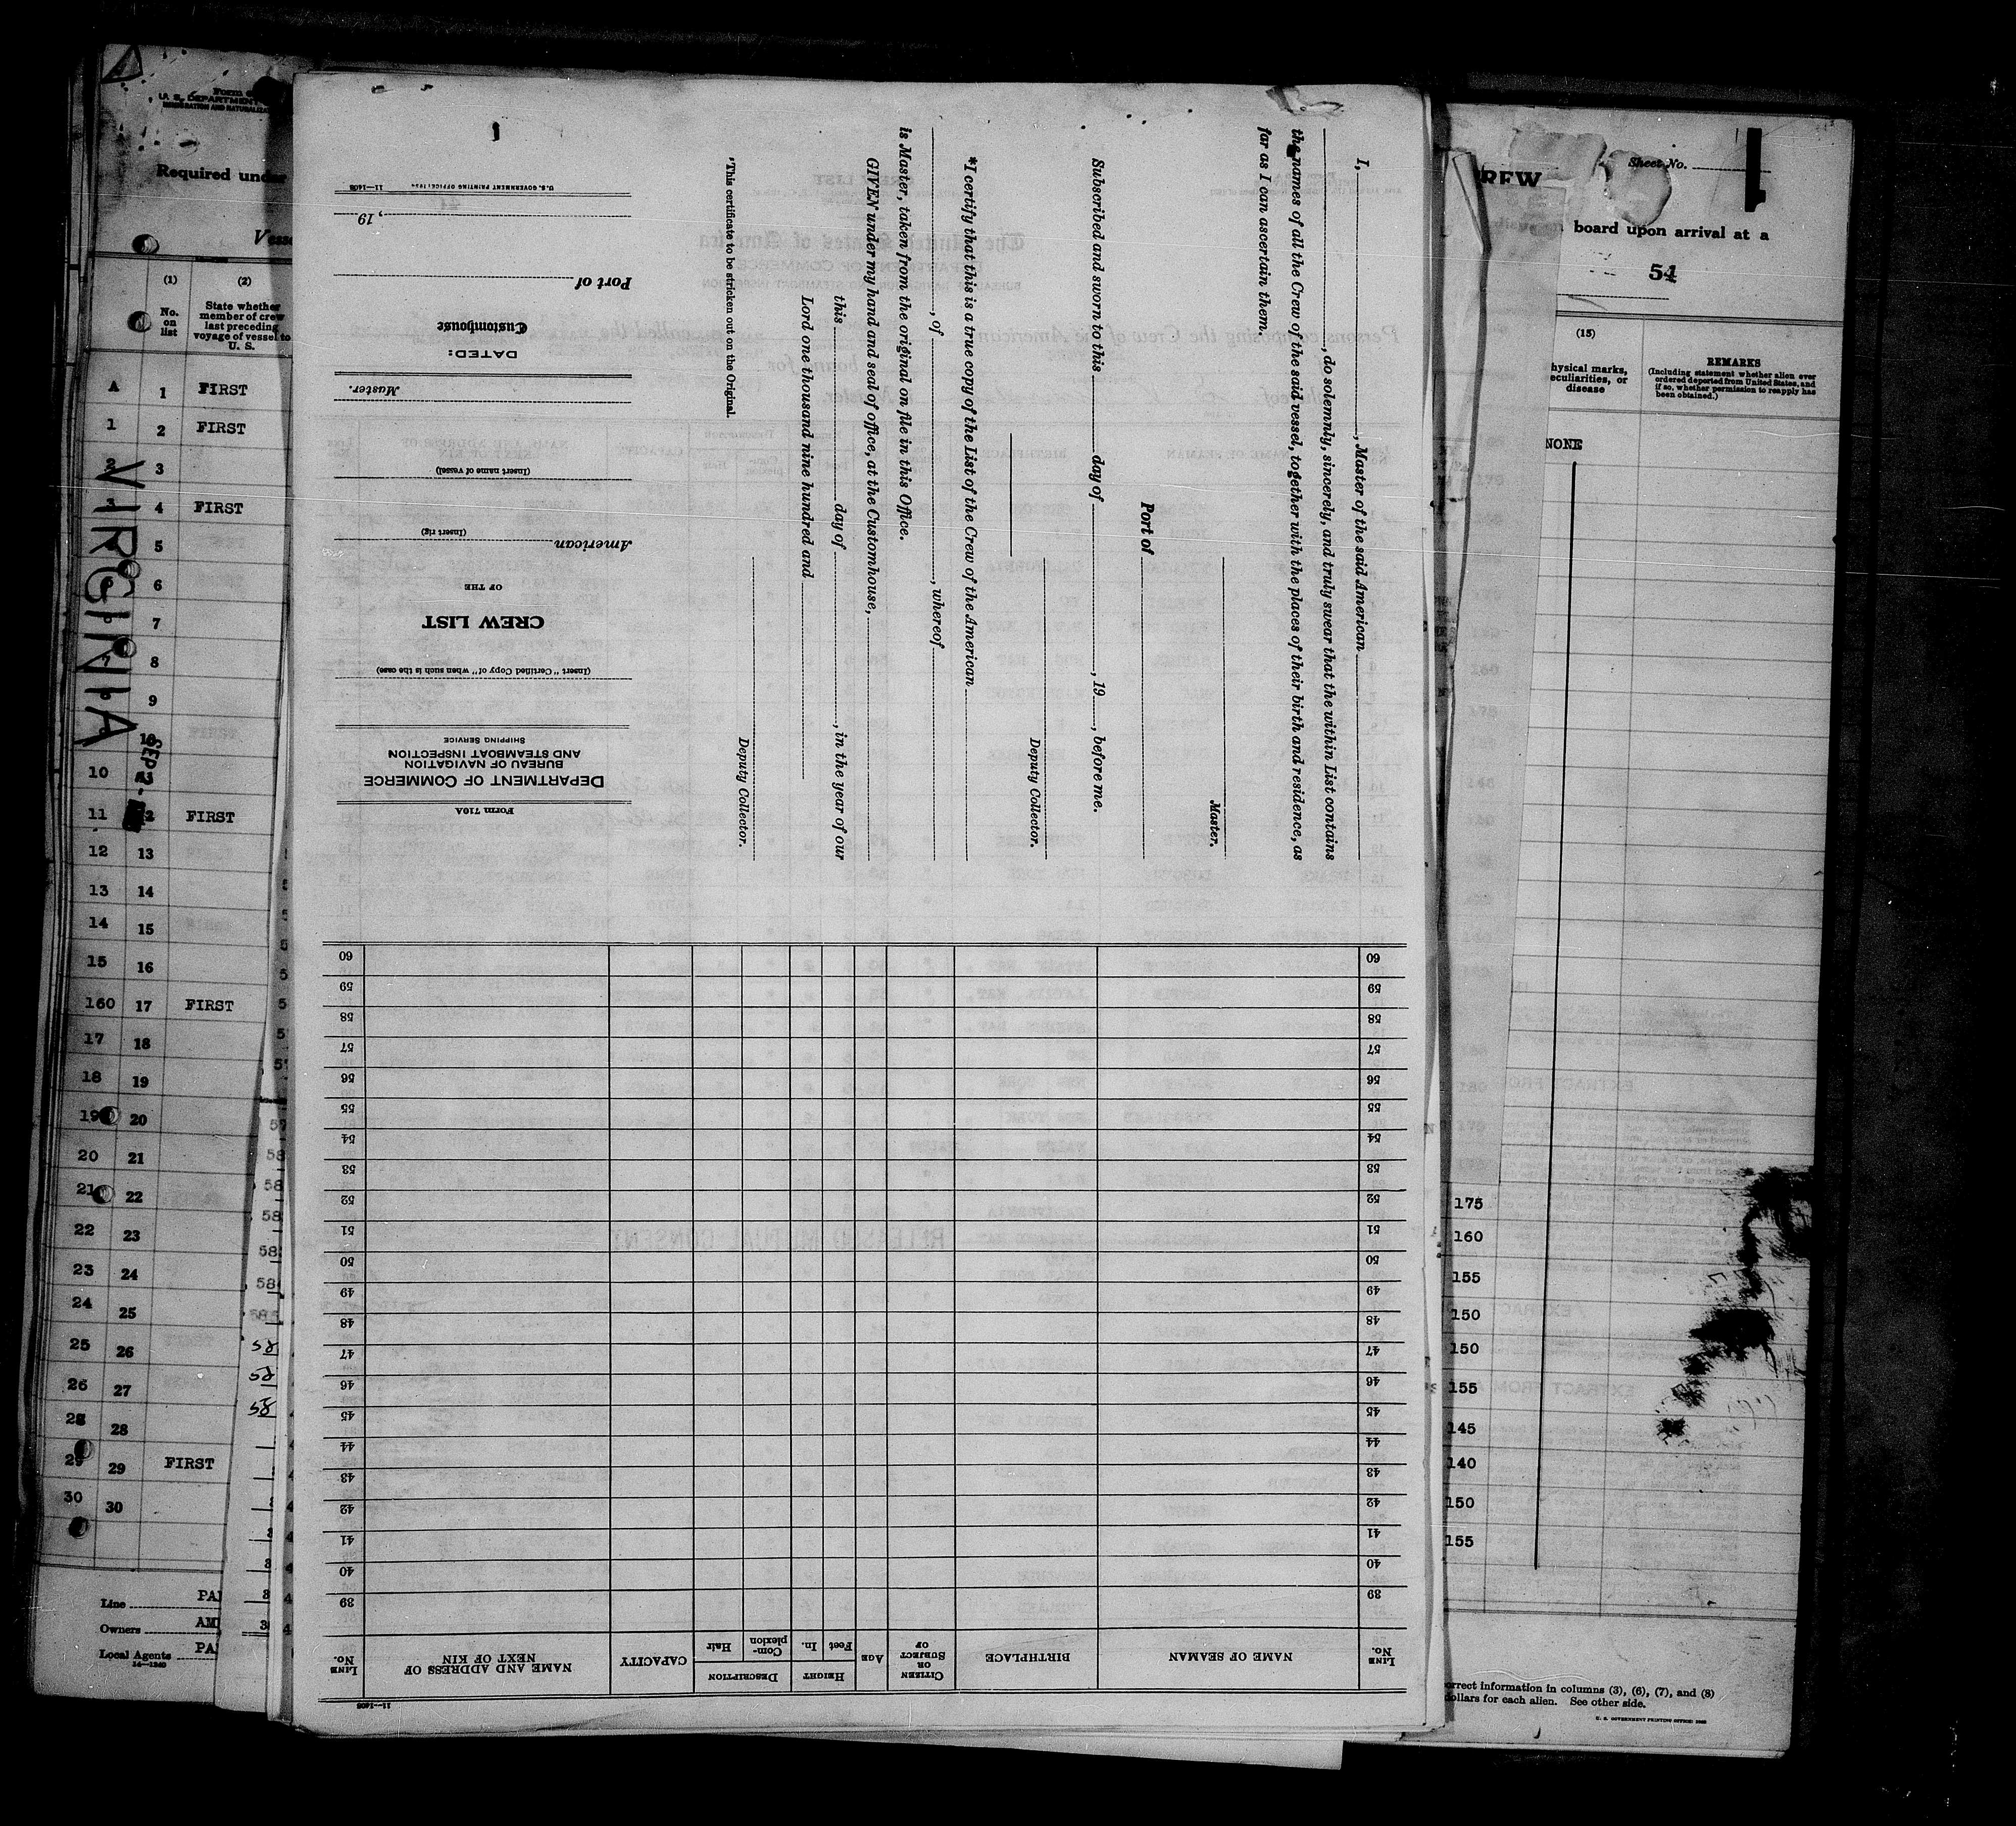 Form
U. S. DEPARTMENT
IMMIGRATION AND NATURALIZ
Required under
Vess
(1)
(2)
No. on list
State whether member of crew last preceding voyage of vessel to U. S.
A 1 FIRST
1 2 FIRST
2 3
4 FIRST
5
6
7
7 8
9
10
10
11 FIRST
12 13
13 14
14 15
15 16
160 17 FIRST
17 18
18 19
19 20
20 21
21 22
22 23
23 24
24 25
25 26
26 27
28 28
29 29 FIRST
30 30
VIRGINIA
SEP
Line PA
Owners AM
Local Agents PA
14—1240
I, , Master of the said American
, do solemnly, sincerely, and truly swear that the within List contains
the names of all the Crew of the said vessel, together with the places of their birth and residence, as
far as I can ascertain them.
Master.
Port of
Subscribed and sworn to this day of , 19 , before me.
Deputy Collector.
*I certify that this is a true copy of the List of the Crew of the American
, of , whereof
is Master, taken from the original on file in this Office.
GIVEN under my hand and seal of office, at the Customhouse,
this day of , in the year of our
Lord one thousand nine hundred and
Deputy Collector.
*This certificate to be stricken out on the Original.
Form 710A
DEPARTMENT OF COMMERCE
BUREAU OF NAVIGATION
AND STEAMBOAT INSPECTION
SHIPPING SERVICE
(Insert "Certified Copy of" when such is the case)
CREW LIST
OF THE
American
(Insert rig)
(Insert name of vessel)
Master.
DATED:
Customhouse
Port of
, 19
U.S. GOVERNMENT PRINTING OFFICE: 11—1408
11—1408
LINE No.
NAME OF SEAMAN
BIRTHPLACE
CITIZEN OR SUBJECT OF
AGE
HEIGHT
Feet
In.
DESCRIPTION
Com-plexion
Hair
CAPACITY
NAME AND ADDRESS OF NEXT OF KIN
LINE No.
39 39
40 40
41 41
42 42
43 43
44 44
45 45
46 46
47 47
48 48
49 49
50 50
51 51
52 52
53 53
54 54
55 55
56 56
57 57
58 58
59 59
60 60
REW
Sheet No.
board upon arrival at a
54
(15)
hysical marks, eculiarities, or disease
REMARKS
(Including statement whether alien ever ordered deported from United States, and if so, whether permission to reapply has been obtained.)
NONE
175
160
155
150
150
155
145
140
150
155
orrect information in columns (3), (6), (7), and (8)
dollars for each alien. See other side.
U. S. GOVERNMENT PRINTING OFFICE: